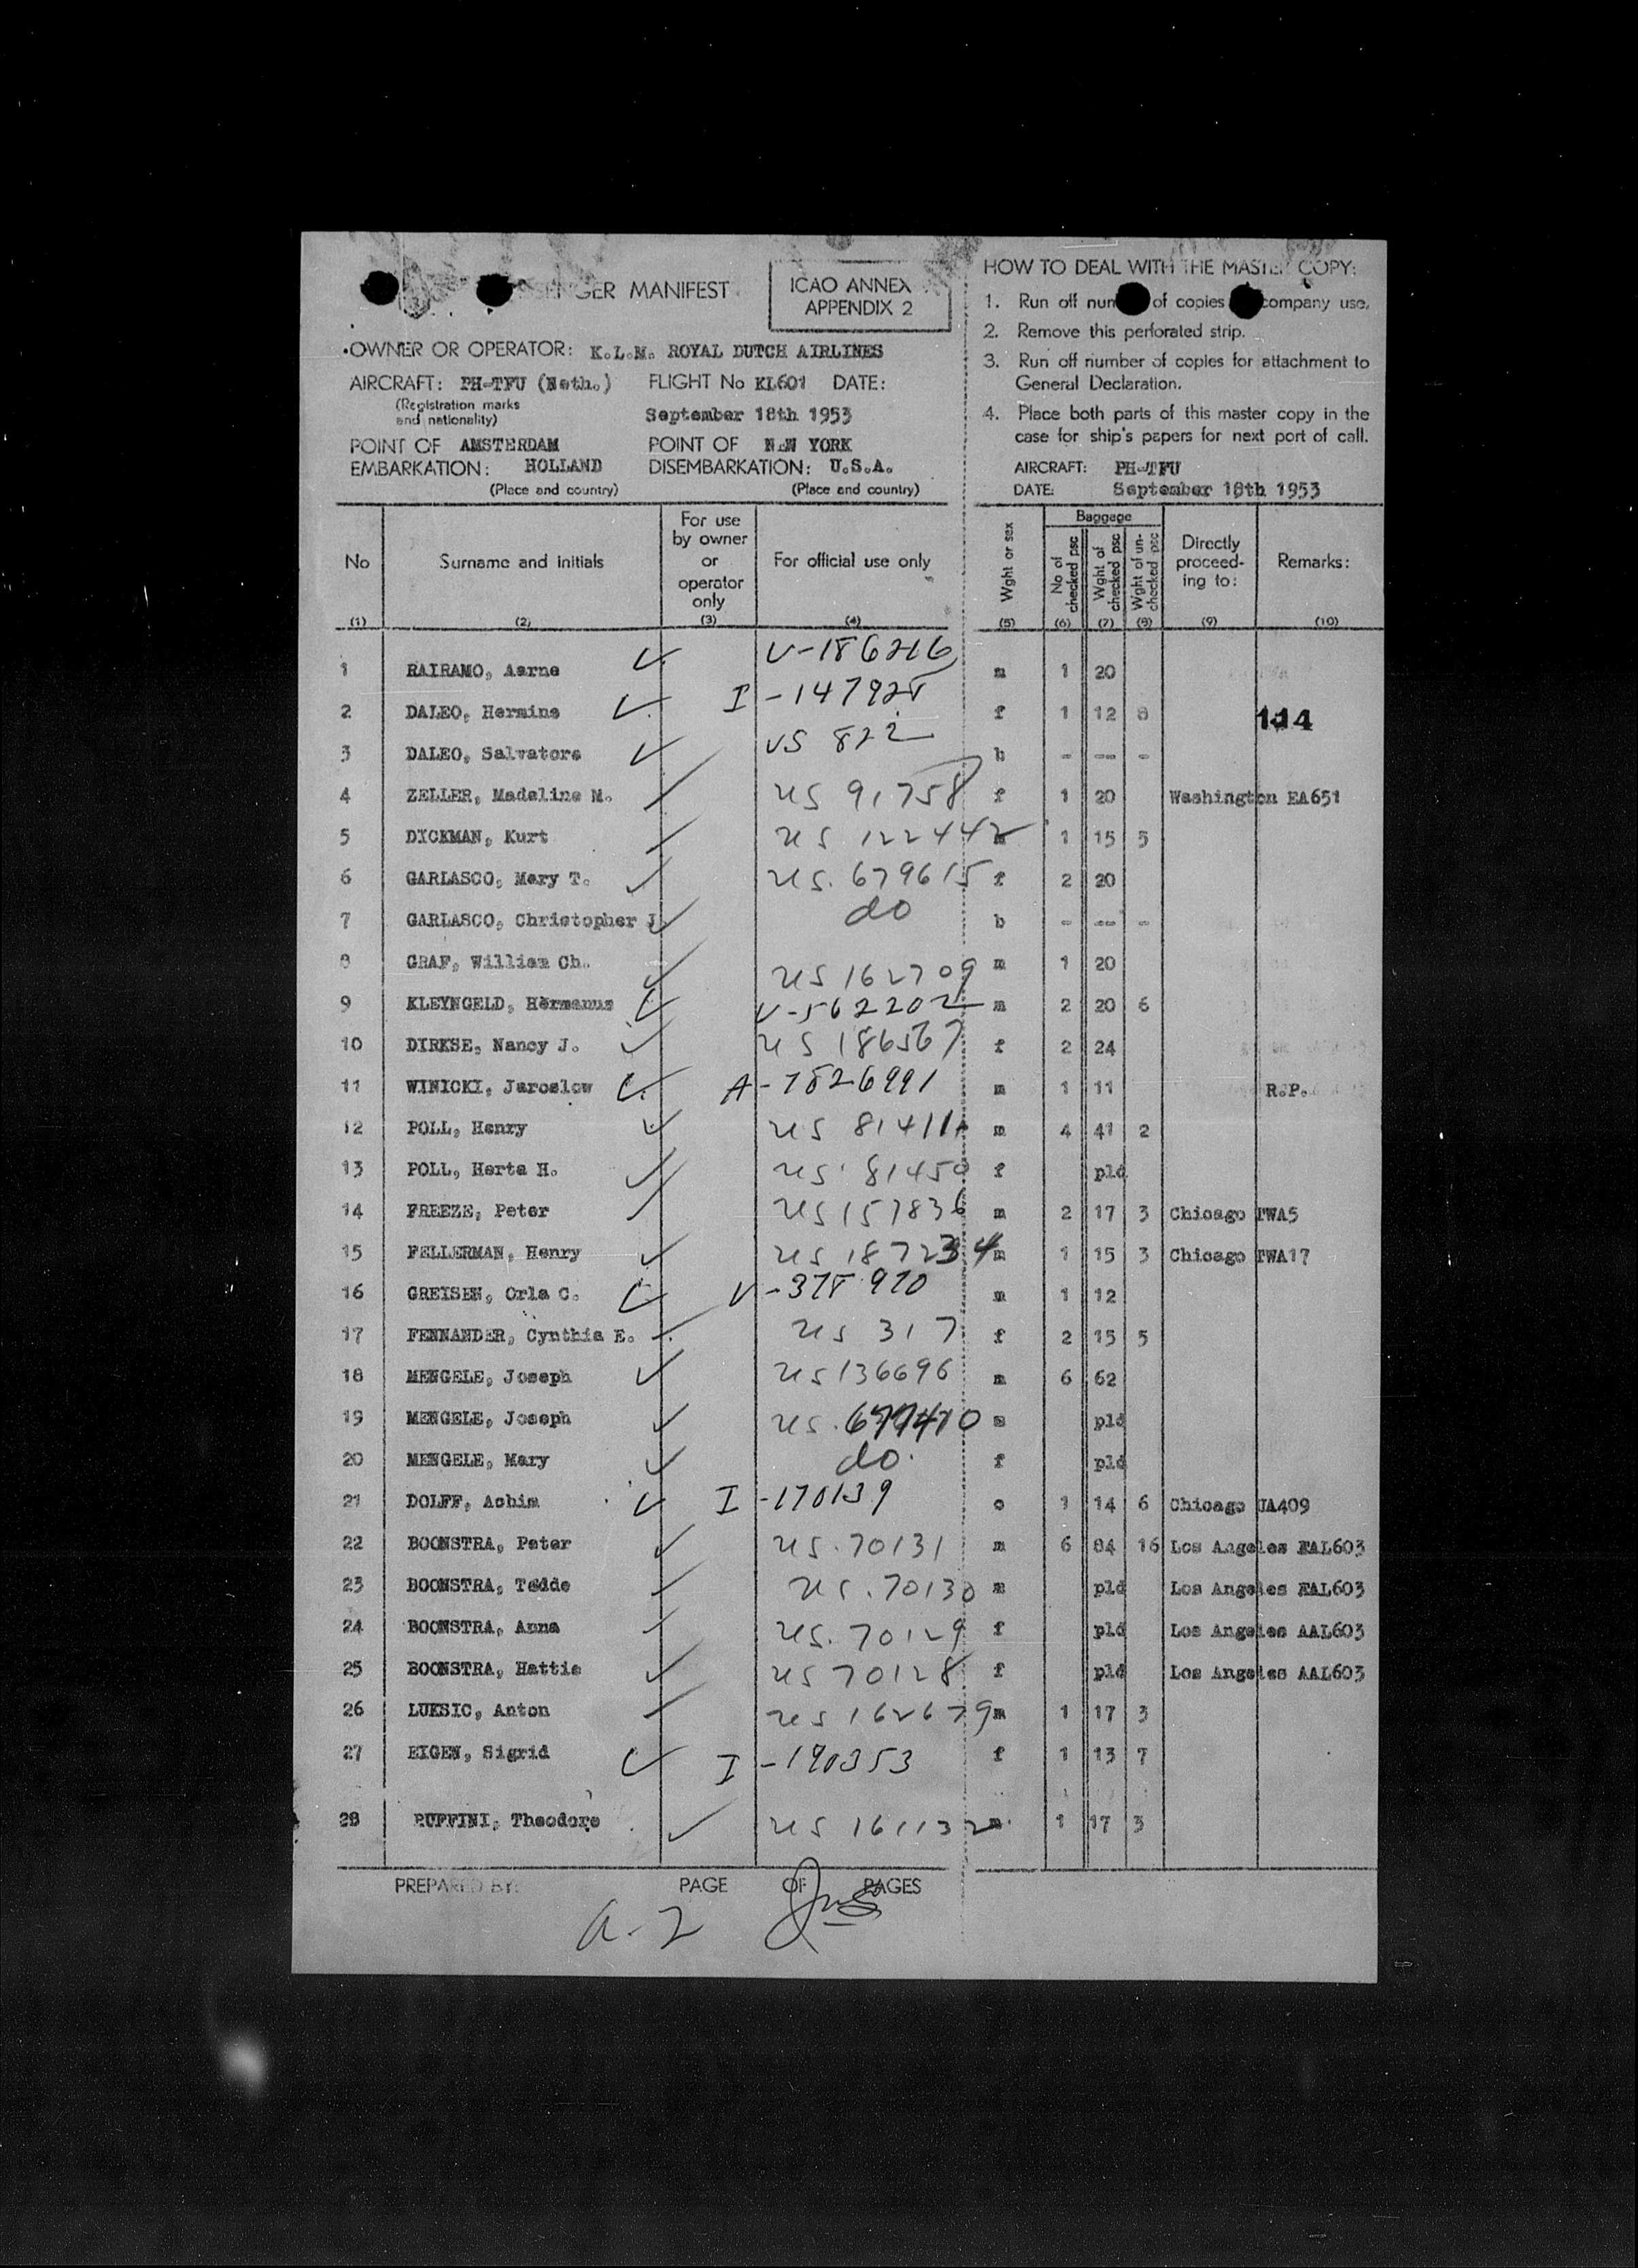 PASSENGER MANIFEST
ICAO ANNEX
APPENDIX 2
OWNER OR OPERATOR: K.L.M. ROYAL DUTCH AIRLINES
AIRCRAFT: PH-TFU (Neth.) FLIGHT No KL601 DATE:
(Registration marks
and nationality)
September 18th 1953
POINT OF AMSTERDAM POINT OF NEW YORK
EMBARKATION: HOLLAND DISEMBARKATION: U.S.A.
(Place and country) (Place and country)
HOW TO DEAL WITH THE MASTER COPY:
1. Run off num of copies company use.
2. Remove this perforated strip.
3. Run off number of copies for attachment to
General Declaration.
4. Place both parts of this master copy in the
case for ship's papers for next port of call.
AIRCRAFT: PH-TFU
DATE: September 18th 1953
No Surname and initials For use by owner or operator only For official use only Wght or sex Baggage No of checked psc Wght of checked psc Wght of un-checked psc Directly proceed-ing to: Remarks:
(1) (2) (3) (4) (5) (6) (7) (8) (9) (10)
1 RAIRAMO, Aarne V-186216 m 1 20
2 DALEO, Hermine I-147928 f 1 12 8 114
3 DALEO, Salvatore VS 822 b - -- -
4 ZELLER, Madeline M. US 91758 f 1 20 Washington EA651
5 DICKMAN, Kurt US 122442 1 15 5
6 GARLASCO, Mary T. US. 679615 f 2 20
7 GARLASCO, Christopher J do b - -- -
8 GRAF, William Ch. US 162709 m 1 20
9 KLEYNGELD, Hermanus V-562202 m 2 20 6
10 DIRKSE, Nancy J. US 186567 f 2 24
11 WINICKI, Jaroslow A-7826991 m 1 11 R.P.
12 POLL, Henry US 81411 m 4 41 2
13 POLL, Herta H. US. 81450 f pld
14 FREEZE, Peter US 157836 m 2 17 3 Chicago TWA5
15 FELLERMAN, Henry US 187234 m 1 15 3 Chicago TWA17
16 GREISEN, Orla C. V-378970 m 1 12
17 FENNANDER, Cynthia E. US 317 f 2 15 5
18 MENGELE, Joseph US 136696 m 6 62
19 MENGELE, Joseph US. m pld
20 MENGELE, Mary do. f pld
21 DOLFF, Achim I-170139 o 1 14 6 Chicago UA409
22 BOONSTRA, Peter US.70131 m 6 84 16 Los Angeles AAL603
23 BOONSTRA, Tedde US.70130 m pld Los Angeles AAL603
24 BOONSTRA, Anna US.70129 f pld Los Angeles AAL603
25 BOONSTRA, Hattie US 70128 f pld Los Angeles AAL603
26 LUKSIC, Anton US 162679 m 1 17 3
27 EIGEN, Sigrid I-190353 f 1 13 7
28 RUFFINI, Theodore US 161132 m 1 17 3
PREPARED BY: PAGE OF PAGES
a-2